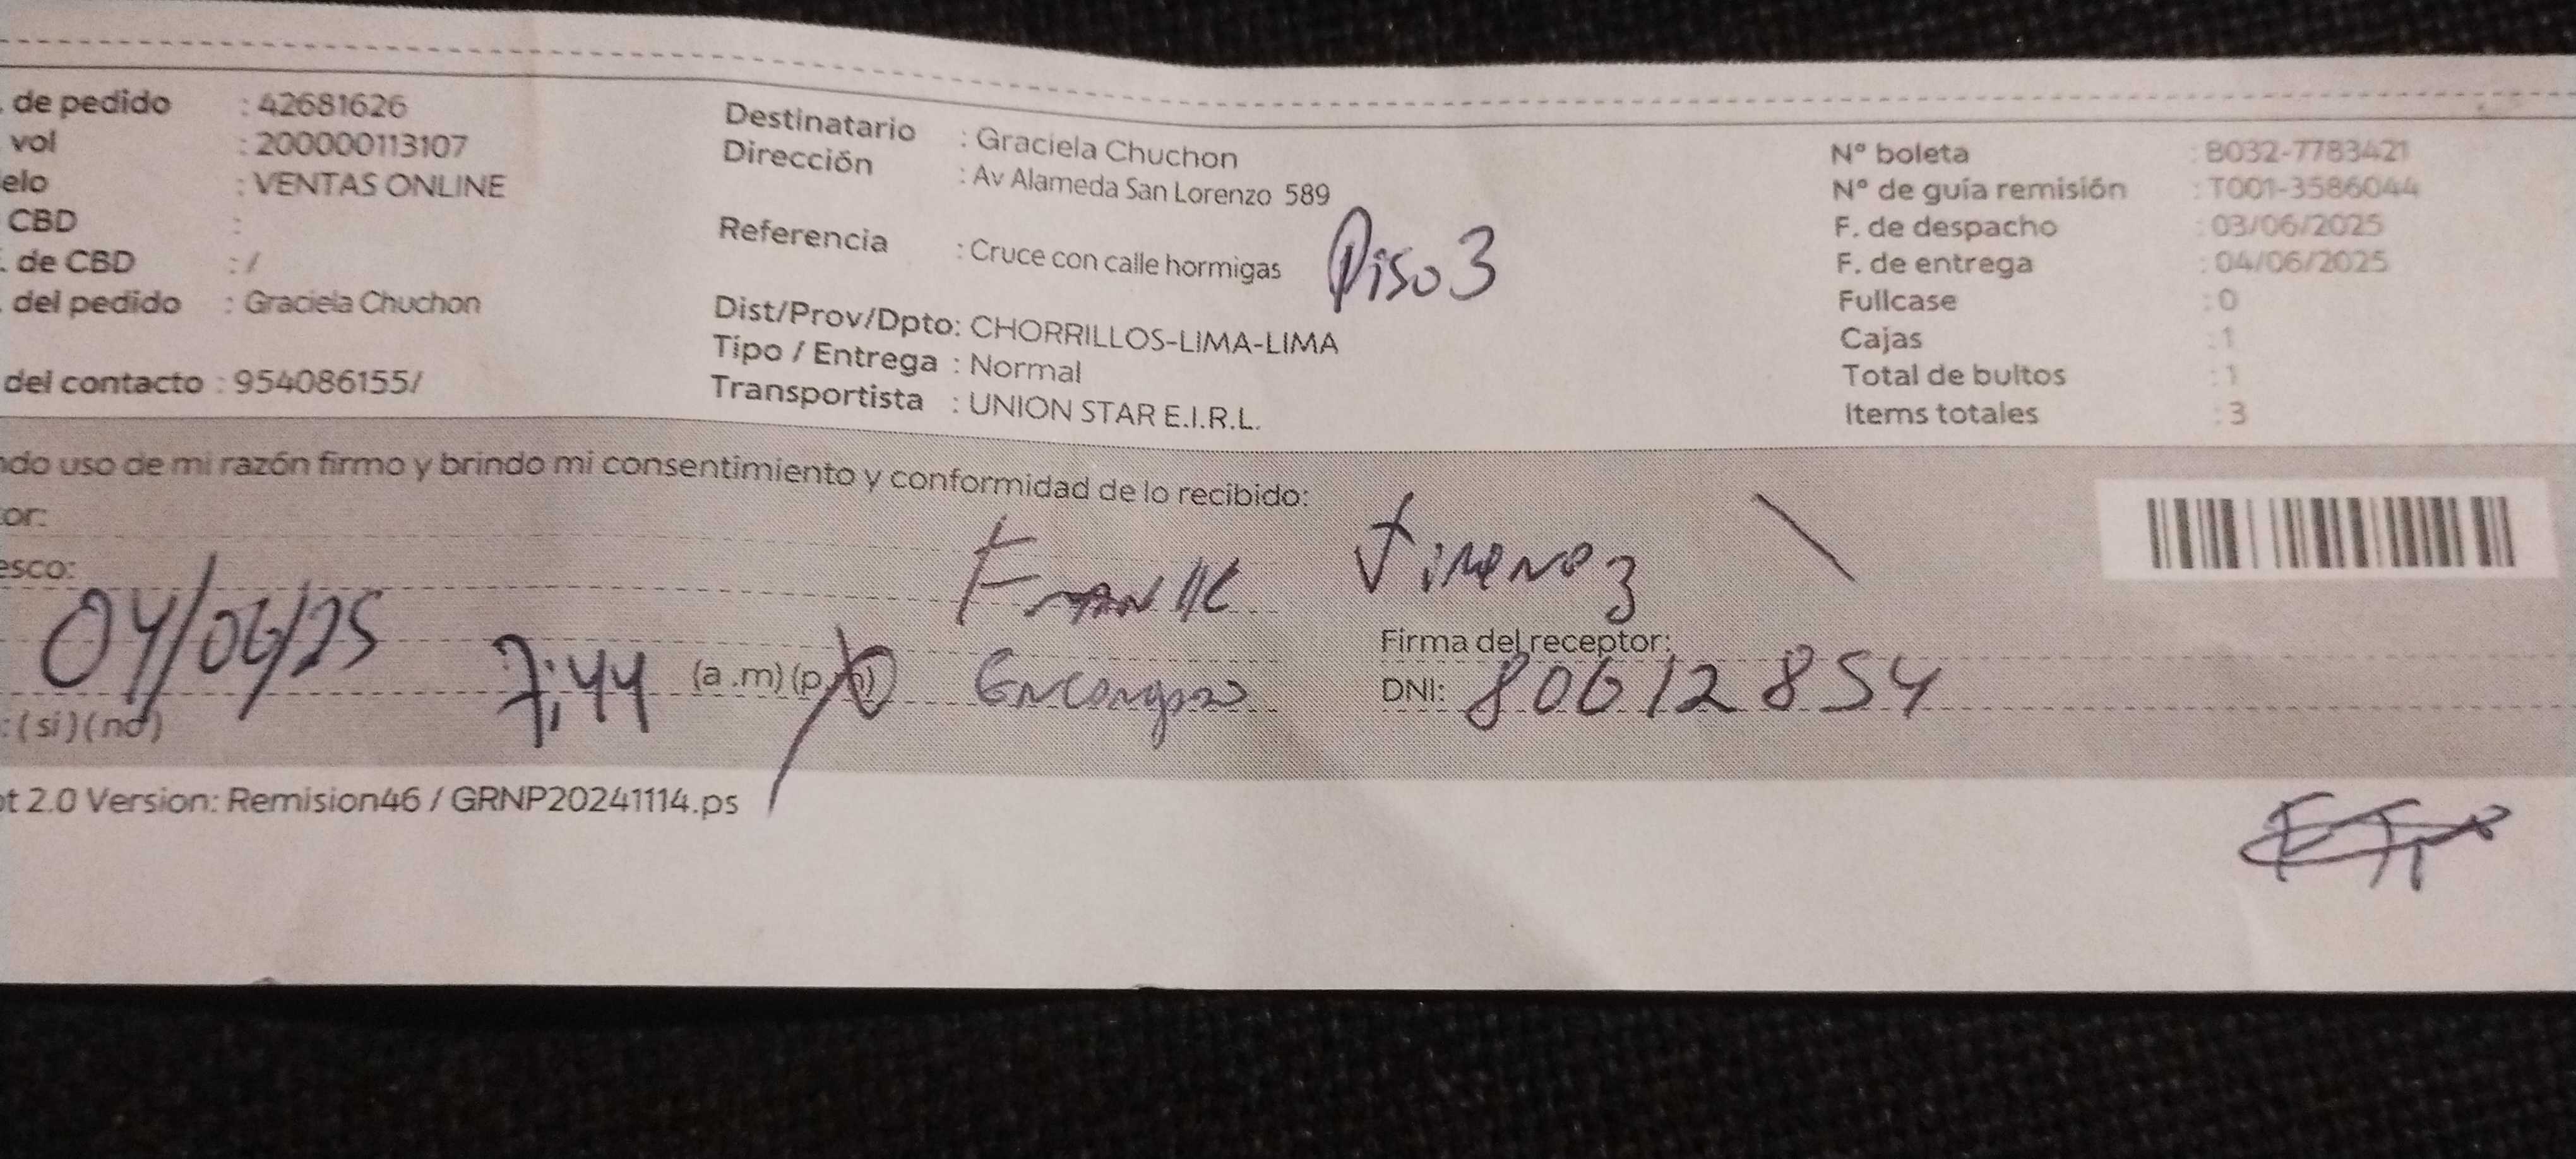 . de pedido : 42681626
vol : 200000113107
elo : VENTAS ONLINE
CBD :
. de CBD : /
. del pedido : Graciela Chuchon
del contacto : 954086155/
Destinatario : Graciela Chuchon
Dirección : Av Alameda San Lorenzo 589
Referencia : Cruce con calle hormigas Piso 3
Dist/Prov/Dpto: CHORRILLOS-LIMA-LIMA
Tipo / Entrega : Normal
Transportista : UNION STAR E.I.R.L.
Nº boleta : B032-7783421
Nº de guía remisión : T001-3586044
F. de despacho : 03/06/2025
F. de entrega : 04/06/2025
Fullcase : 0
Cajas : 1
Total de bultos : 1
Items totales : 3
ndo uso de mi razón firmo y brindo mi consentimiento y conformidad de lo recibido:
or:
esco:
Frank Jimenez
04/06/25 7:44 (a .m) (p.m)
Firma del receptor:
DNI: 80612854
: (si) (no)
ot 2.0 Version: Remision46 / GRNP20241114.ps